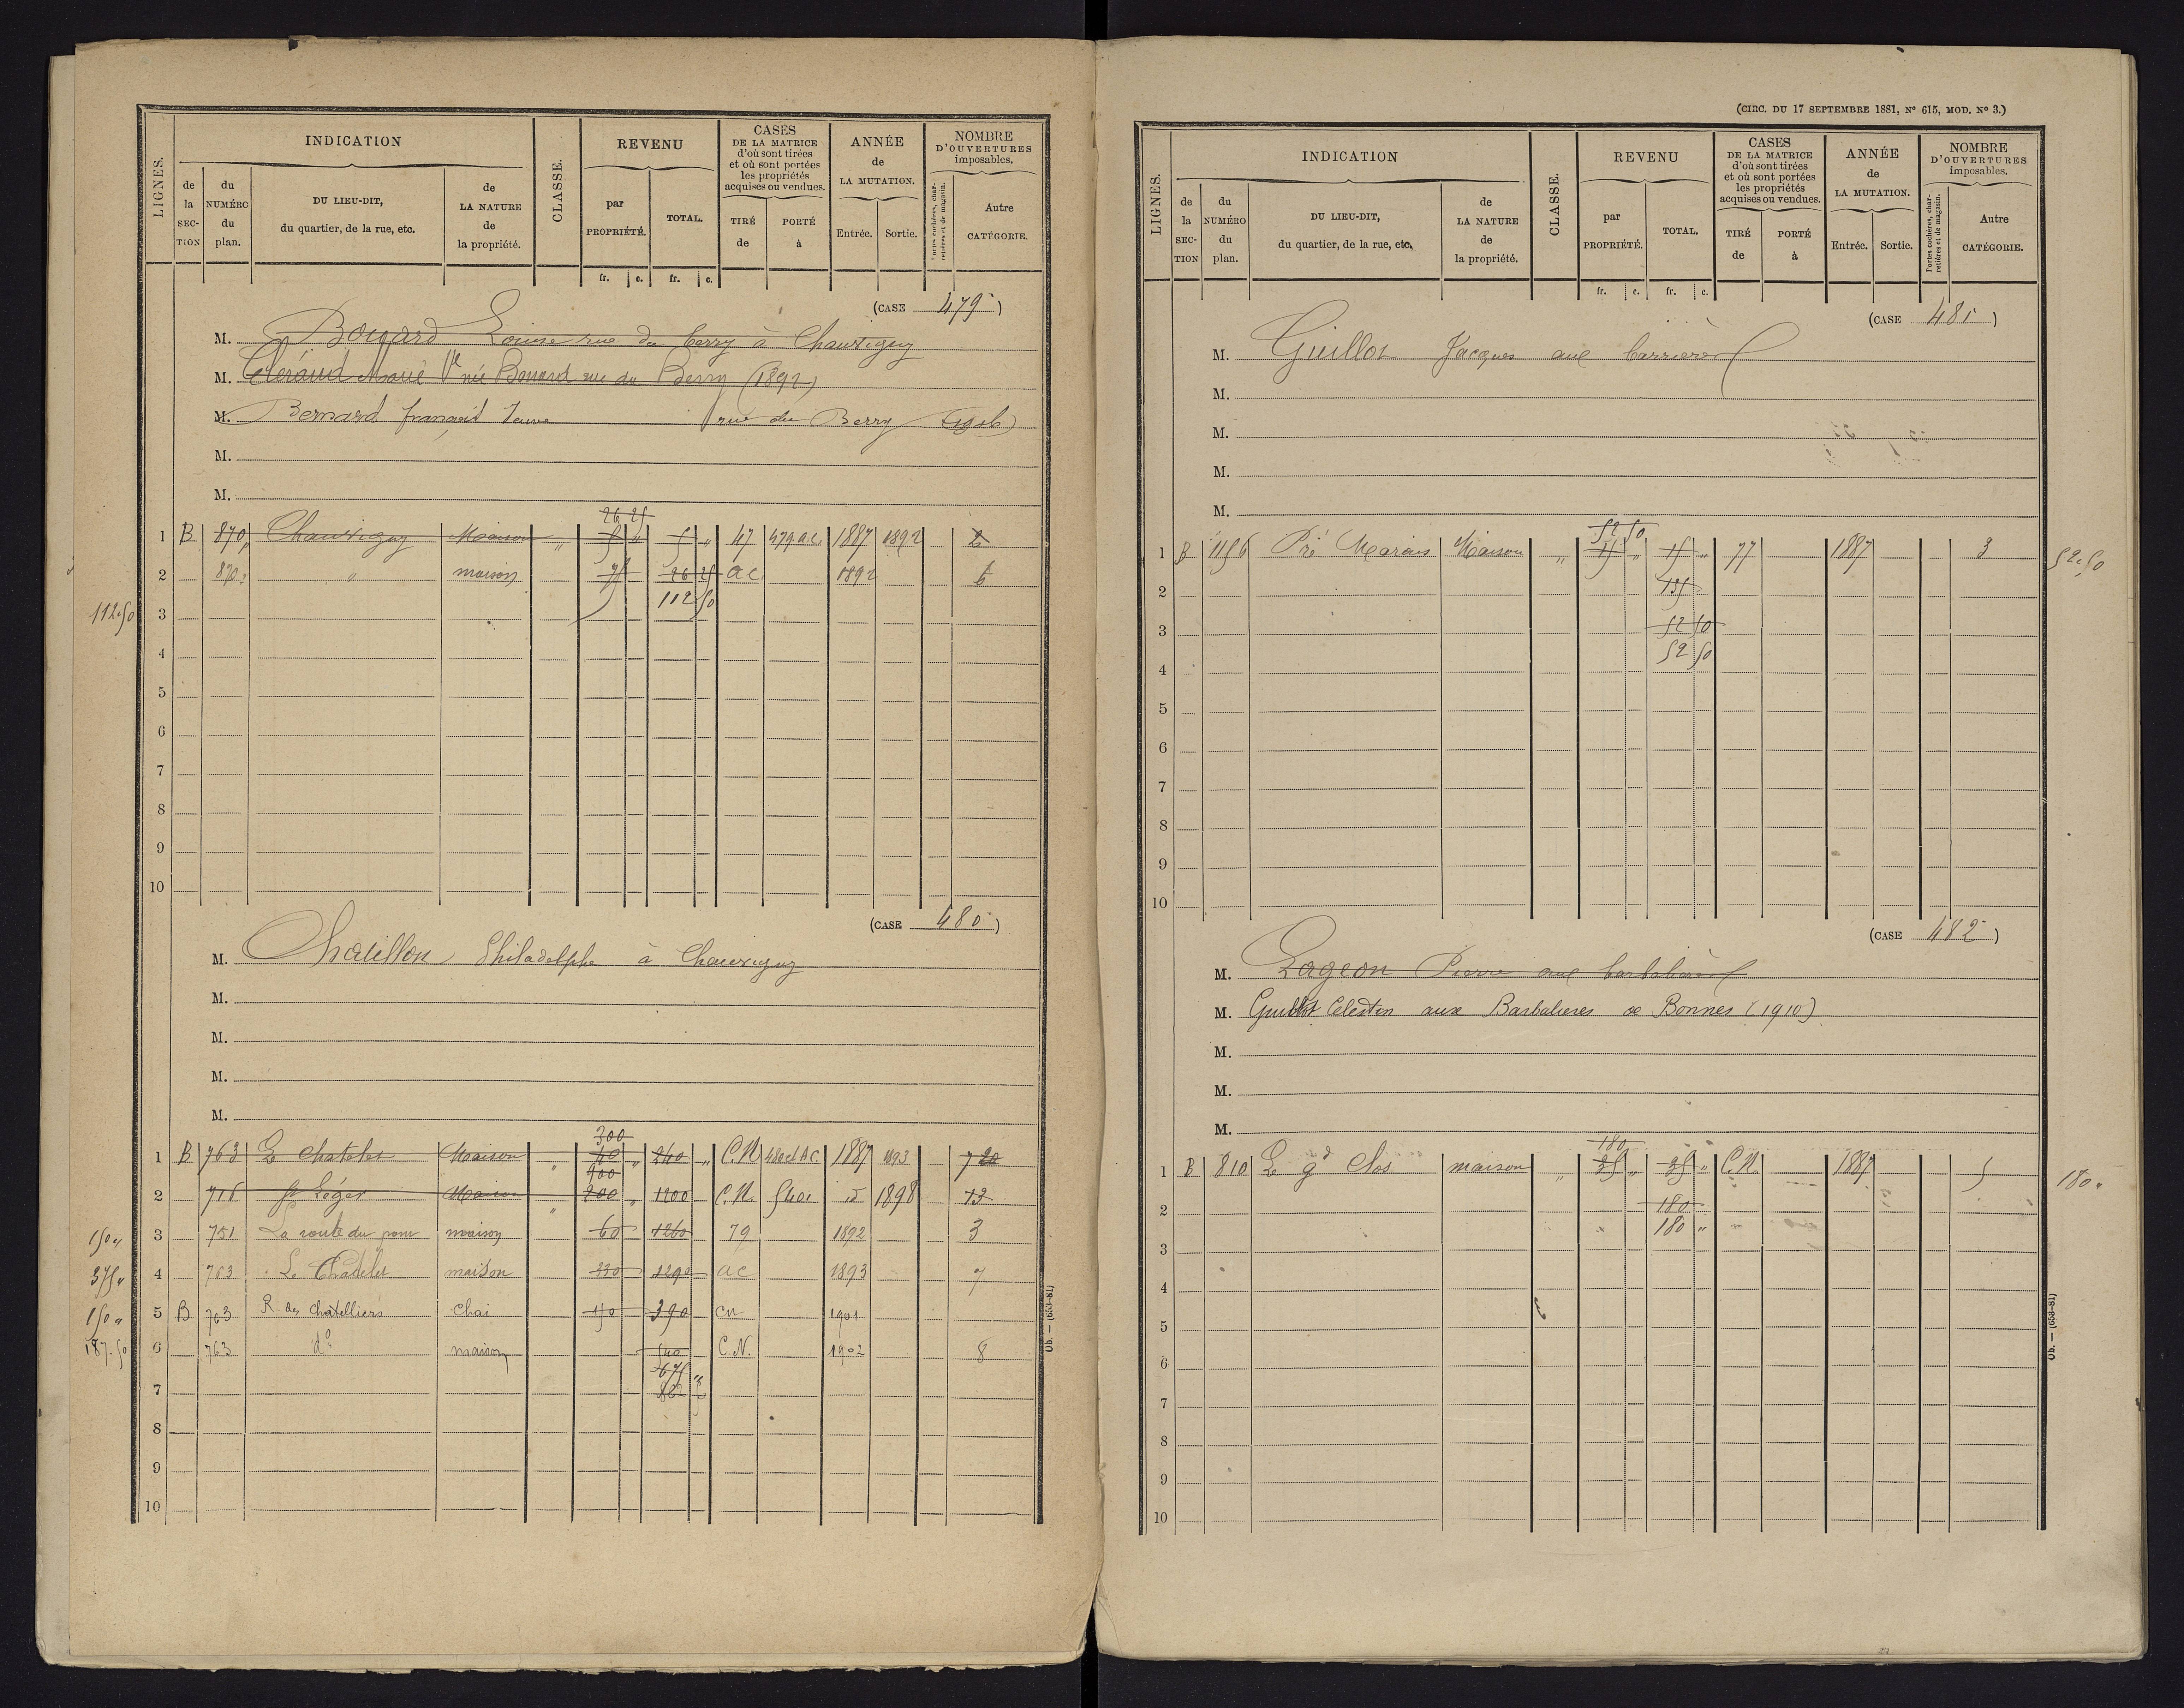 LIGNES.
INDICATION
de la SECTION
du NUMÉRO du plan.
DU LIEU-DIT, du quartier, de la rue, etc.
de LA NATURE de la propriété.
CLASSE.
REVENU
par PROPRIÉTÉ.
TOTAL.
fr. c. fr. c.
CASES DE LA MATRICE d'où sont tirées et où sont portées les propriétés acquises ou vendues.
TIRÉ de
PORTÉ à
ANNÉE de LA MUTATION.
Entrée. Sortie.
NOMBRE D'OUVERTURES imposables.
Portes cochères, charretières et de magasin.
Autre CATÉGORIE.
(CASE 479)
M. Bouard Louise rue du berry à Chauvigny
M. Marie Vve née Bouard rue du Berry (1892)
M. Bernard françois rue du Berry
M.
M.
26 25
1 B 870p Chauvigny Maison " 5 " 5 " 47 479 ac. 1887 1892 2
2 870p " maison 75 26 25 ac 1892 6
112 50
112.50 3
4
5
6
7
8
9
10
(CASE 480)
M. Chatillon Philadelphe à Chauvigny
M.
M.
M.
M.
300
1 B 763 Le Chatelet Maison " 40 " 240 " C.N 480 et AC 1887 1893 7 20
900
2 716 St Léger Maison " 200 " 1200 C.N. 1898 13
150 " 3 751 La route du pont maison 60 1260 79 1892 3
375 " 4 763 Le Chatelet maison 330 1290 ac 1893 7
150 " 5 B 763 R. des Chatelliers Chai 150 390 cn 1901
187.50 6 763 do maison 540 C.N. 1902 8
675 "
7 862 50
8
9
10
Ob. — (653-81)
(CIRC. DU 17 SEPTEMBRE 1881, No 615, MOD. No 3.)
LIGNES.
INDICATION
de la SECTION
du NUMÉRO du plan.
DU LIEU-DIT, du quartier, de la rue, etc.
de LA NATURE de la propriété.
CLASSE.
REVENU
par PROPRIÉTÉ.
TOTAL.
fr. c. fr. c.
CASES DE LA MATRICE d'où sont tirées et où sont portées les propriétés acquises ou vendues.
TIRÉ de
PORTÉ à
ANNÉE de LA MUTATION.
Entrée. Sortie.
NOMBRE D'OUVERTURES imposables.
Portes cochères, charretières et de magasin.
Autre CATÉGORIE.
(CASE 481)
M. Guillot Jacques aux Carrières
M.
M.
M.
M.
52 50
1 B 1156 Pré Marais Maison " 15 " 15 " 77 1887 3 52.50
2 135
3 52 50
52 50
4
5
6
7
8
9
10
(CASE 482)
M. Pageon Pierre aux barbalières
M. Guillot Celestin aux Barbalieres de Bonnes (1910)
M.
M.
M.
180
1 B 810 Le gd Clos maison " 35 " 35 " C.N. 1887 5 180 "
2 180
180 "
3
4
5
6
7
8
9
10
Ob. — (653-81)